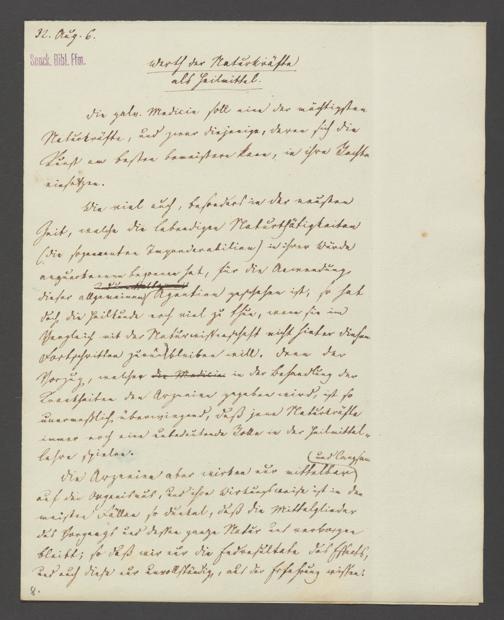 32. Aug. 6.
Senck. Bibl. Ffm.
Werth der Naturkräfte
als Heilmittel.
Die galv. Medicin soll eine der mächtigsten
Naturkräfte, und zwar diejenige, deren sich die
Kunst am besten bemeistern kann, in ihre Rechte
einsetzen.
Wie viel auch, besonders in der neuesten
Zeit, welche die lebendigen Naturthätigkeiten
(die sogenannten Imponderabilien) in ihrer Würde
anzuerkennen begonnen hat, für die Anwendung
dieser allgemeinen Agentien geschehen ist; so hat
doch die Heilkunde noch viel zu thun, wenn sie im
Vergleich mit der Naturwissenschaft nicht hinter diesen
Fortschritten zurückbleiben will. Denn der
Vorzug, welcher die Medicin in der Behandlung der
Krankheiten den Arzneien gegeben wird, ist so
unermeßlich überwiegend, daß jene Naturkräfte
immer noch eine unbedeutende Rolle in der Heilmittel-
lehre spielen.
(und langsam
Die Arzneien aber wirken nur mittelbar
auf den Organismus, und ihre Wirkungsweise ist in den
meisten Fällen so dunkel, daß die Mittelglieder
des Vorgangs und dessen ganze Natur uns verborgen
bleibt; so daß wir nur die Endresultate des Effects,
und auch diese nur unvollständig, als der Erfahrung wissen: